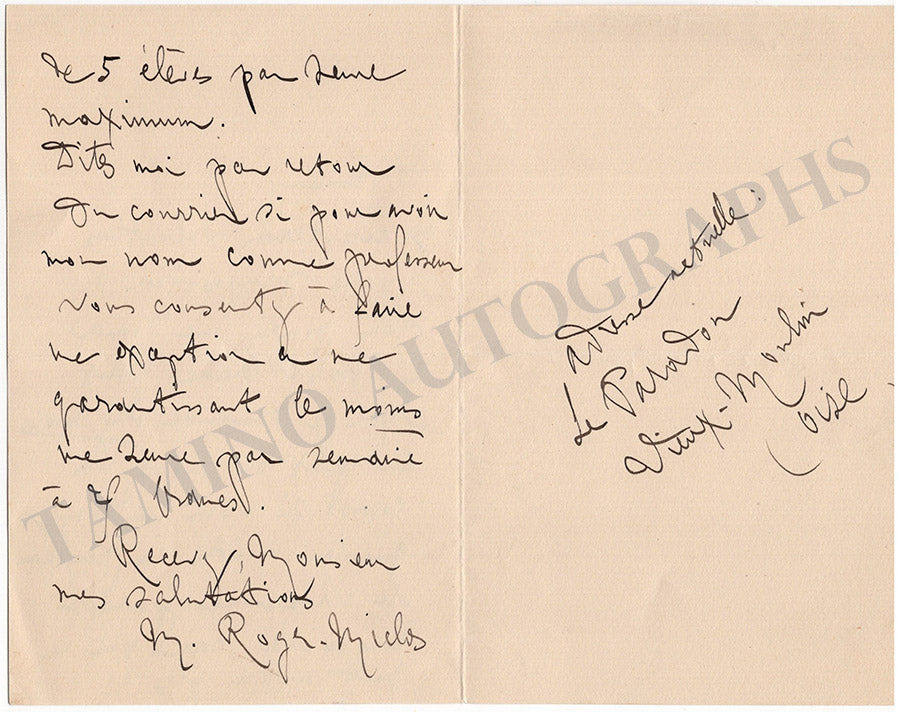 de 5 élèves par heure
maximum.
Dites moi par retour
du courrier si pour avoir
mon nom comme professeur
vous consentez à faire
une exception en me
garantissant le moins
une heure par semaine
à francs.
Recevez, Monsieur
mes salutations
M. Roger-Miclos
adresse actuelle:
Le Paradou
Vieux-Moulin
(oise)
TAMINO AUTOGRAPHS